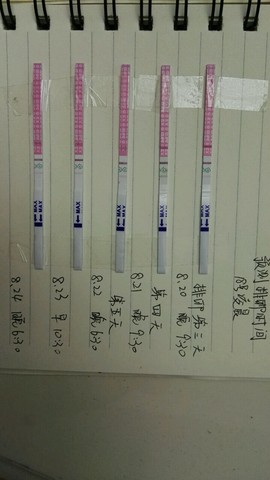 预测排卵时间
排卵第三天
MAX
8.20 晚 9:30
第四天
MAX
8.21 晚 9:30
第五天
MAX
8.22 晚 6:30
MAX
8.23 早 10:30
MAX
8.24 晚 6:30